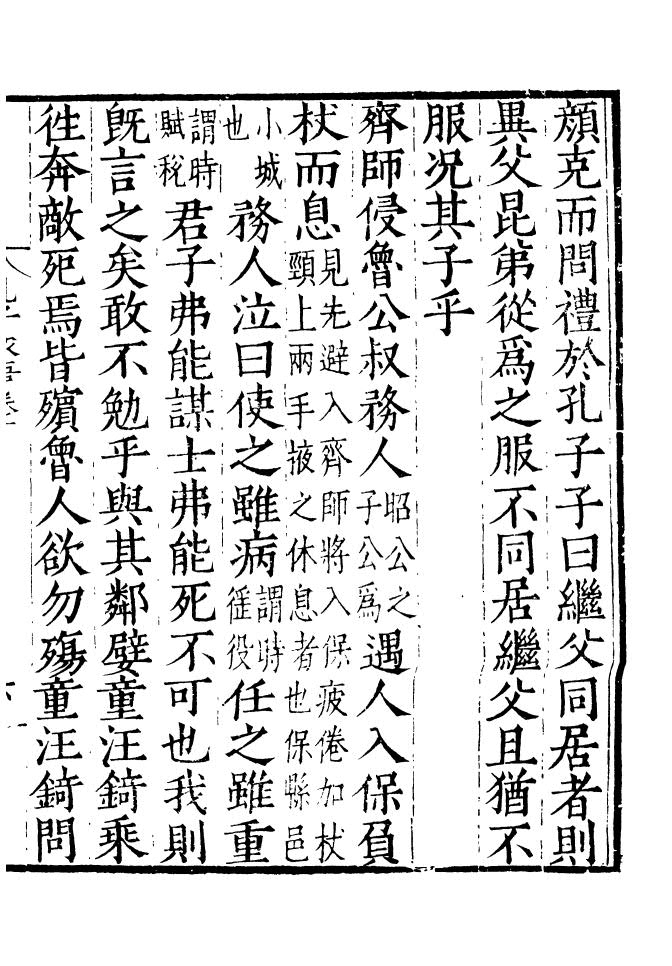 顏克而問禮於孔子子曰繼父同居者則
異父昆弟從爲之服不同居繼父且猶不
服况其子乎
齊師侵魯公叔務人昭公之子公爲遇人入保負
杖而息見先避入齊師將入保疲倦加杖頸上兩手掖之休息者也保縣邑
小城也務人泣曰使之雖病謂時徭役任之雖重
謂時賦稅君子弗能謀士弗能死不可也我則
旣言之矣敢不勉乎與其鄰嬖童汪錡乘
徃奔敵死焉皆殯魯人欲勿殤童汪錡問